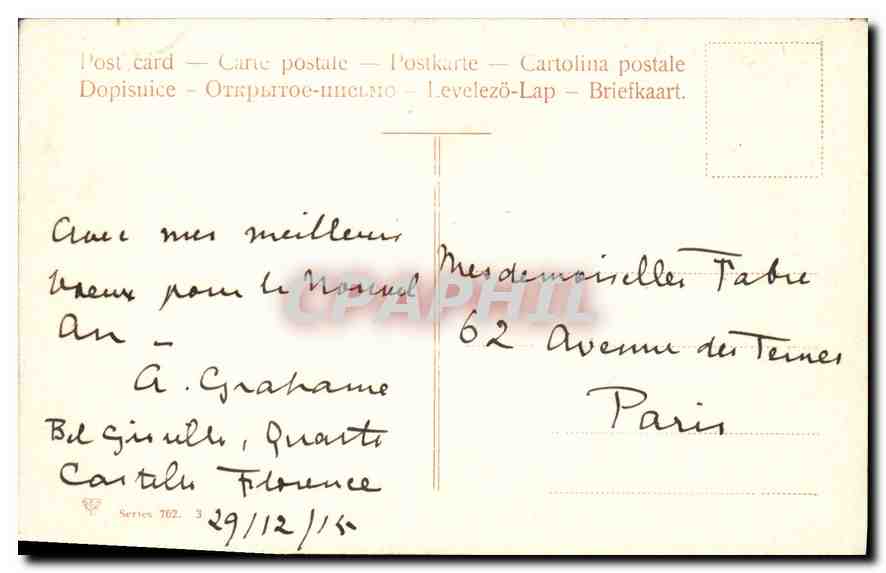 Post card — Carte postale — Postkarte — Cartolina postale
Dopisnice – Открытое-письмо – Levelezö-Lap – Briefkaart.
Avec mes meilleurs
vœux pour le Nouvel
An –
A. Grahame
Quarto
Castello Florence
29/12/15
Series 762. 3
Mesdemoiselles Fabre
62 Avenue des Ternes
Paris
CPAPHIL